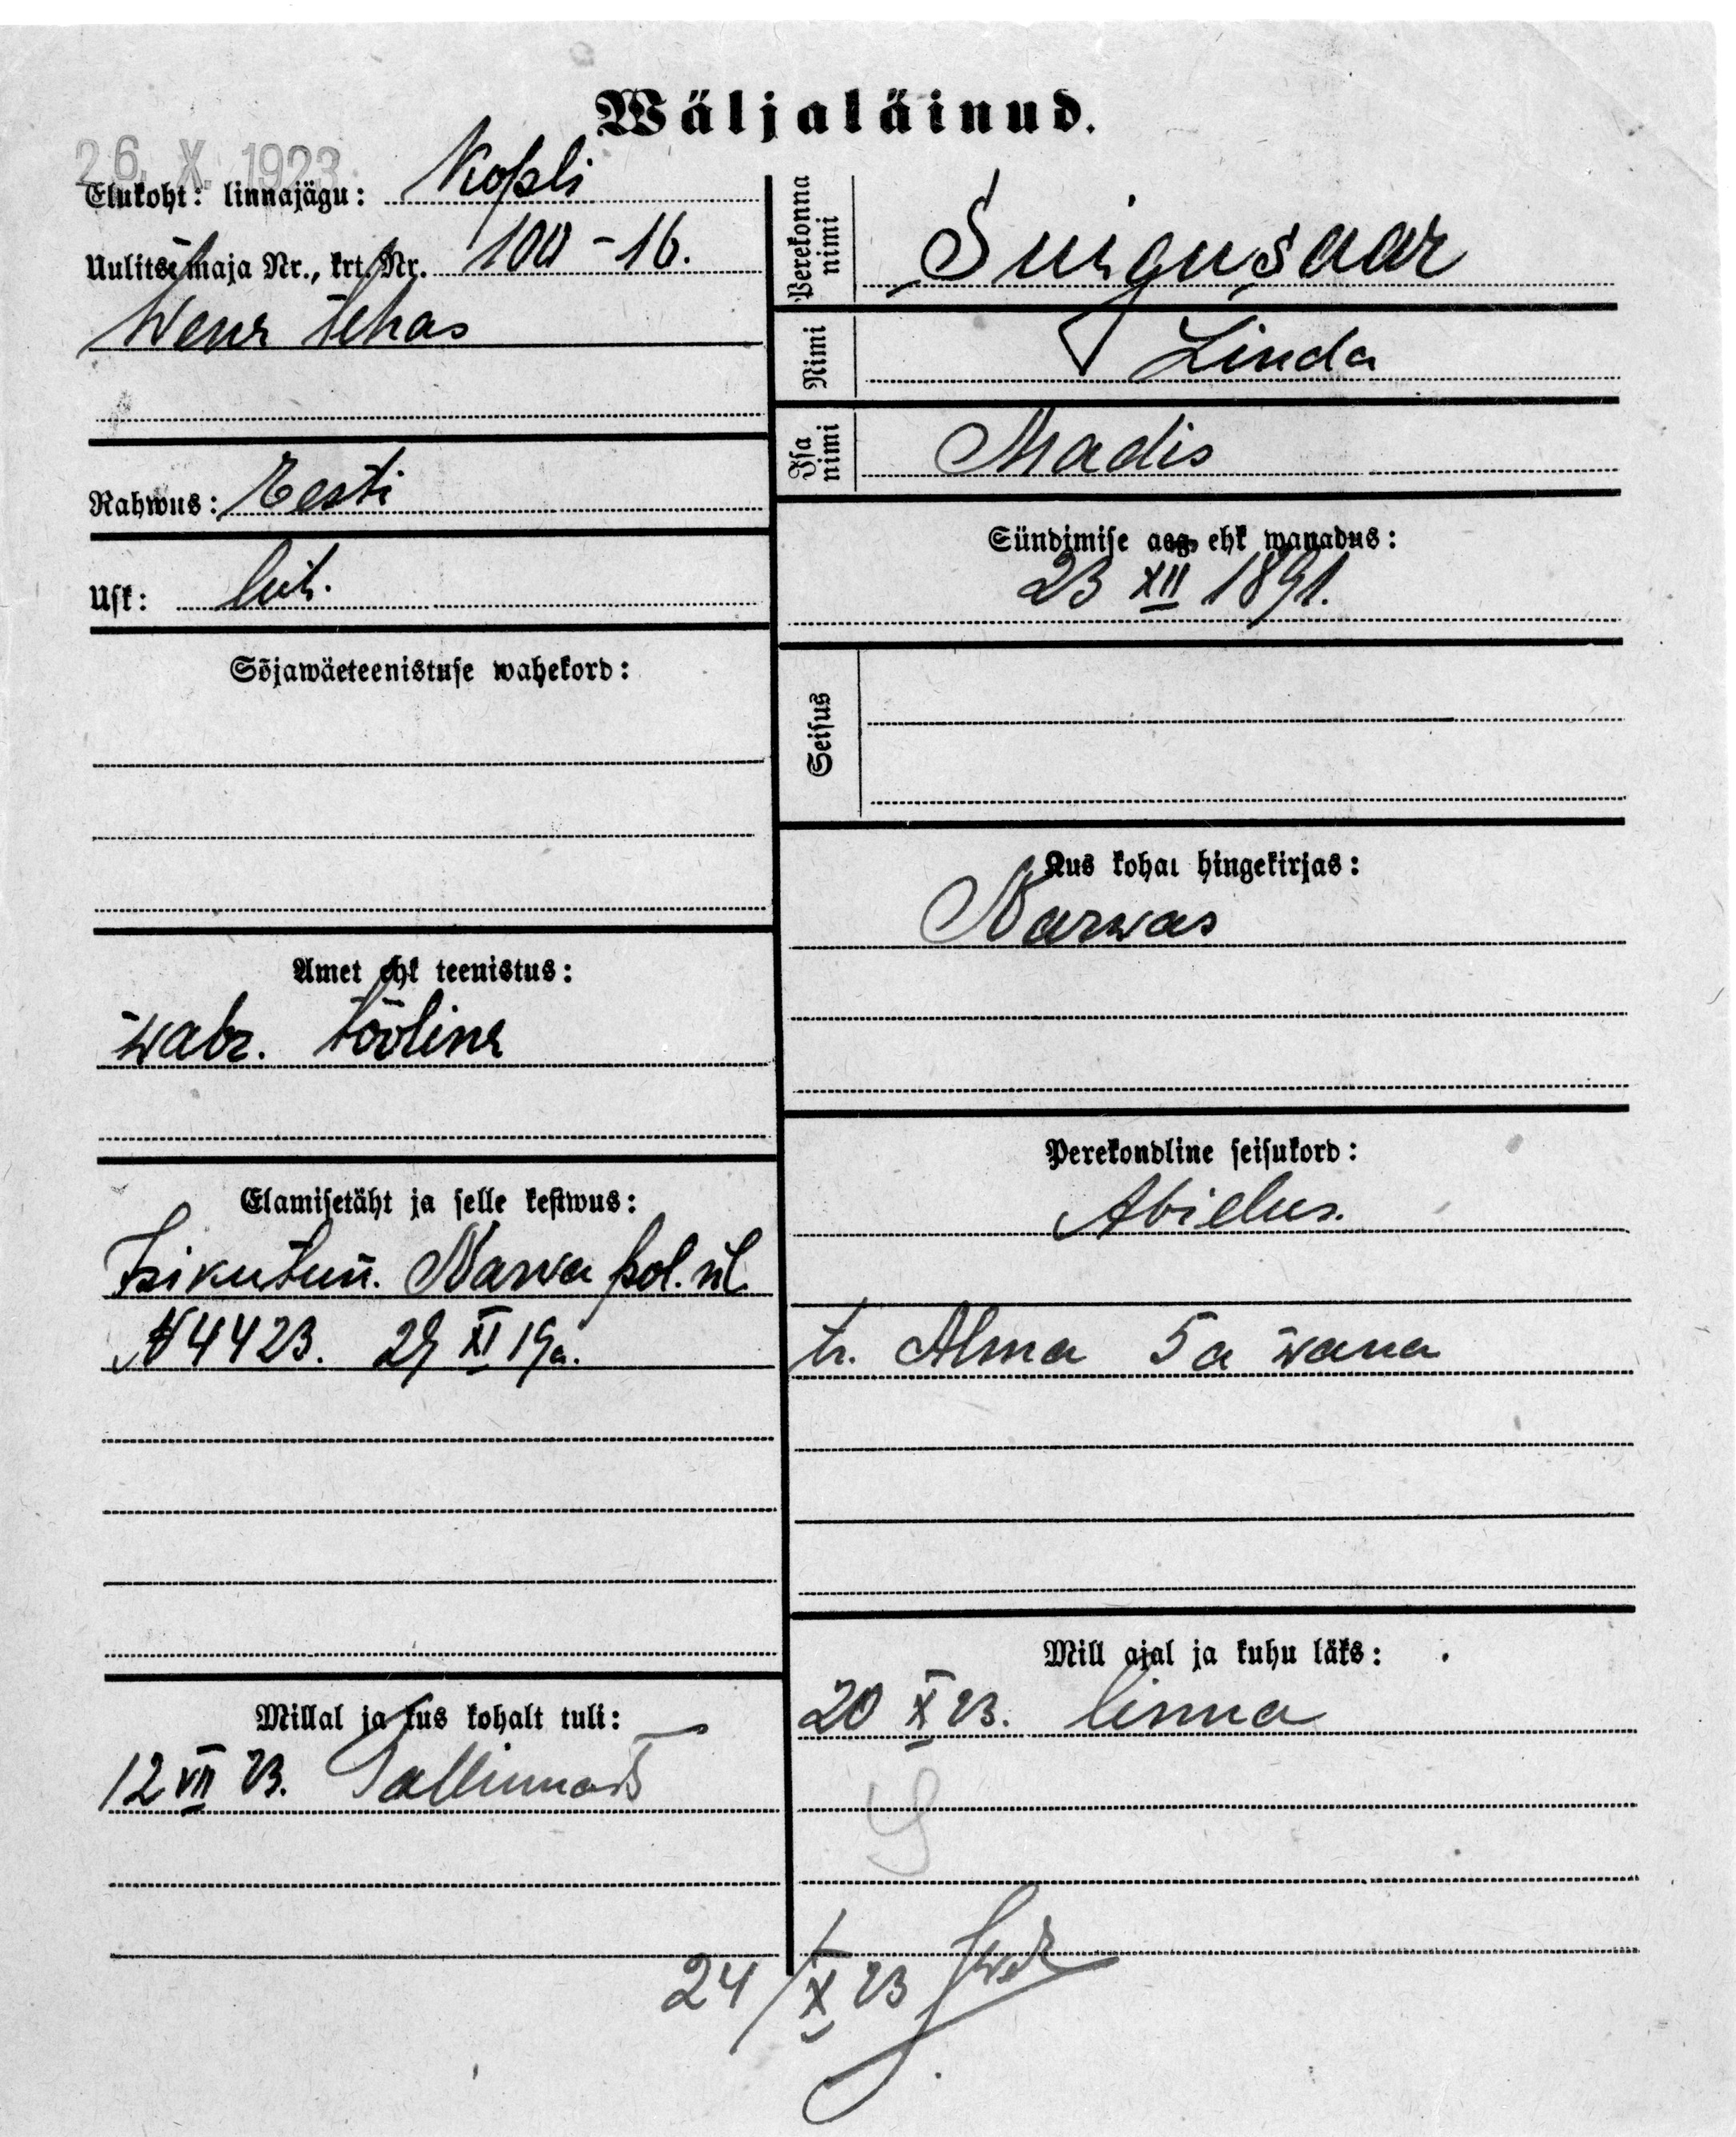 Wäljaläinud.
26. X. 1923.
Elukoht: linnajägu: Kopli
Uulits, maja Nr., krt. Nr. 100 - 16.
Wene tehas
Rahwus: Eesti
Usk: lut.
Sõjawäeteenistuse wahekord:
Amet ehk teenistus:
wabr. tööline
Elamisetäht ja selle kestwus:
Isikutun. Narva pol. ül.
N 4423. 29 XI 19a.
Millal ja kus kohalt tuli:
12 VII 23. Tallinnast
Perekonna nimi Suigusaar
Nimi Linda
Isa nimi Madis
Sündimise aeg ehk wanadus:
23 XII 1891.
Seisus
Kus kohal hingekirjas:
Narwas
Perekondline seisukord:
Abielus.
tr. Alma 5 a wana
Mill ajal ja kuhu läks:
20 X 23. linna
24/X 23